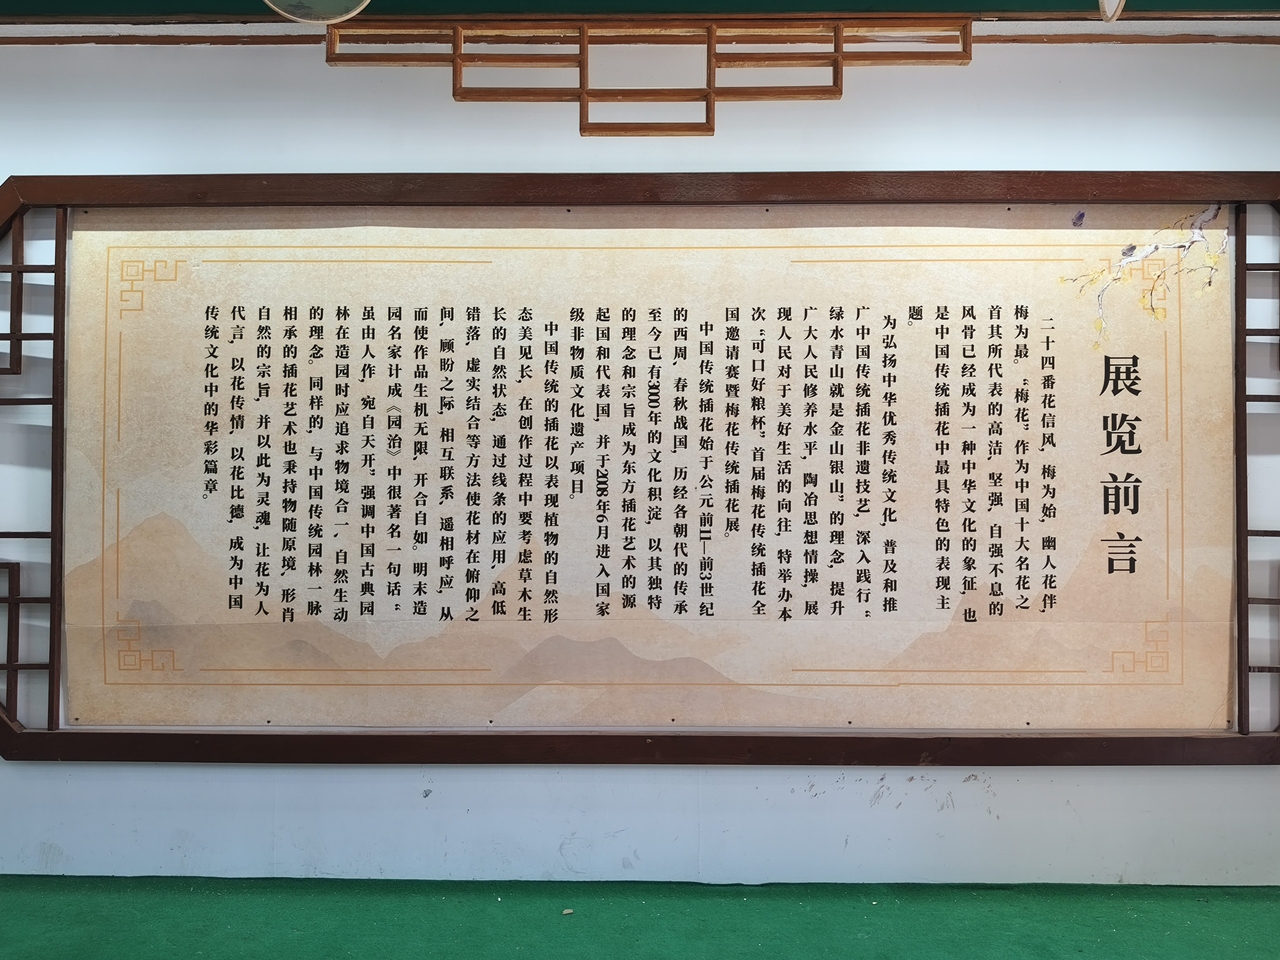 展览前言
二十四番花信风，梅为始，幽人花伴，
梅为最。“梅花”作为中国十大名花之
首其所代表的高洁，坚强，自强不息的
风骨已经成为一种中华文化的象征，也
是中国传统插花中最具特色的表现主
题。
为弘扬中华优秀传统文化，普及和推
广中国传统插花非遗技艺，深入践行“
绿水青山就是金山银山”的理念，提升
广大人民修养水平，陶冶思想情操，展
现人民对于美好生活的向往，特举办本
次“可口好粮杯”首届梅花传统插花全
国邀请赛暨梅花传统插花展。
中国传统插花始于公元前11—前3世纪
的西周，春秋战国，历经各朝代的传承
至今已有3000年的文化积淀，以其独特
的理念和宗旨成为东方插花艺术的源
起国和代表国，并于2008年6月进入国家
级非物质文化遗产项目。
中国传统的插花以表现植物的自然形
态美见长，在创作过程中要考虑草木生
长的自然状态，通过线条的应用，高低
错落，虚实结合等方法使花材在俯仰之
间，顾盼之际，相互联系，遥相呼应，从
而使作品生机无限，开合自如。明末造
园名家计成《园冶》中很著名一句话“
虽由人作，宛自天开”强调中国古典园
林在造园时应追求物境合一、自然生动
的理念。同样的，与中国传统园林一脉
相承的插花艺术也秉持物随原境，形肖
自然的宗旨，并以此为灵魂，让花为人
代言，以花传情，以花比德，成为中国
传统文化中的华彩篇章。